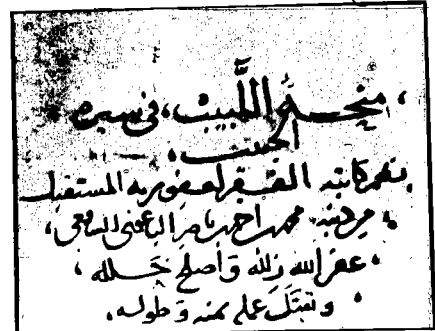 منحة اللَّبيب، في سيرة
الحبيب،
نظم كاتبه الفقير لعفو ربه المستقيل
من ذنبه محمد بن احمد بن ناصر الباعوني الشافعي،
غفر الله زلله وأصلح خلله،
وتقبَّل عمله بمنه وطوله،